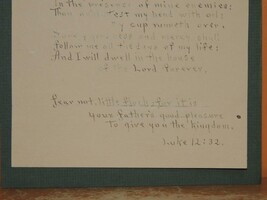 In the presence of mine enemies:
Thou anointest my head with oil;
My cup runneth over.
Surely goodness and mercy shall
follow me all the days of my life:
And I will dwell in the house
of the Lord forever.
Fear not, little flock, for it is
your father's good pleasure
To give you the kingdom.
Luke 12:32.